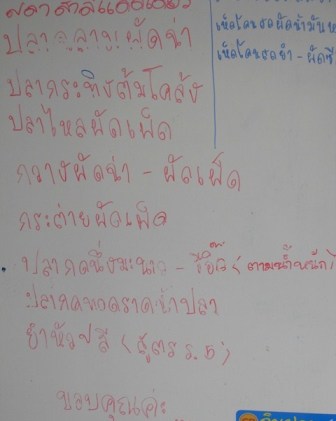 ปลา ฉลาม ผัดฉ่า
ปลากระทิงต้มโคล้ง
ปลาไหลผัดเผ็ด
กวางผัดฉ่า - ผัดเผ็ด
กระต่ายผัดเผ็ด
ปลากดนึ่งมะนาว - ซีอิ๊ว (ตามน้ำหนัก)
ปลากดทอดราดน้ำปลา
ยำหัวปลี (สูตร ร.5)
ขอบคุณค่ะ
เห็ดโคนสดผัดน้ำมันห
เห็ดโคนสดยำ - ผัดซี